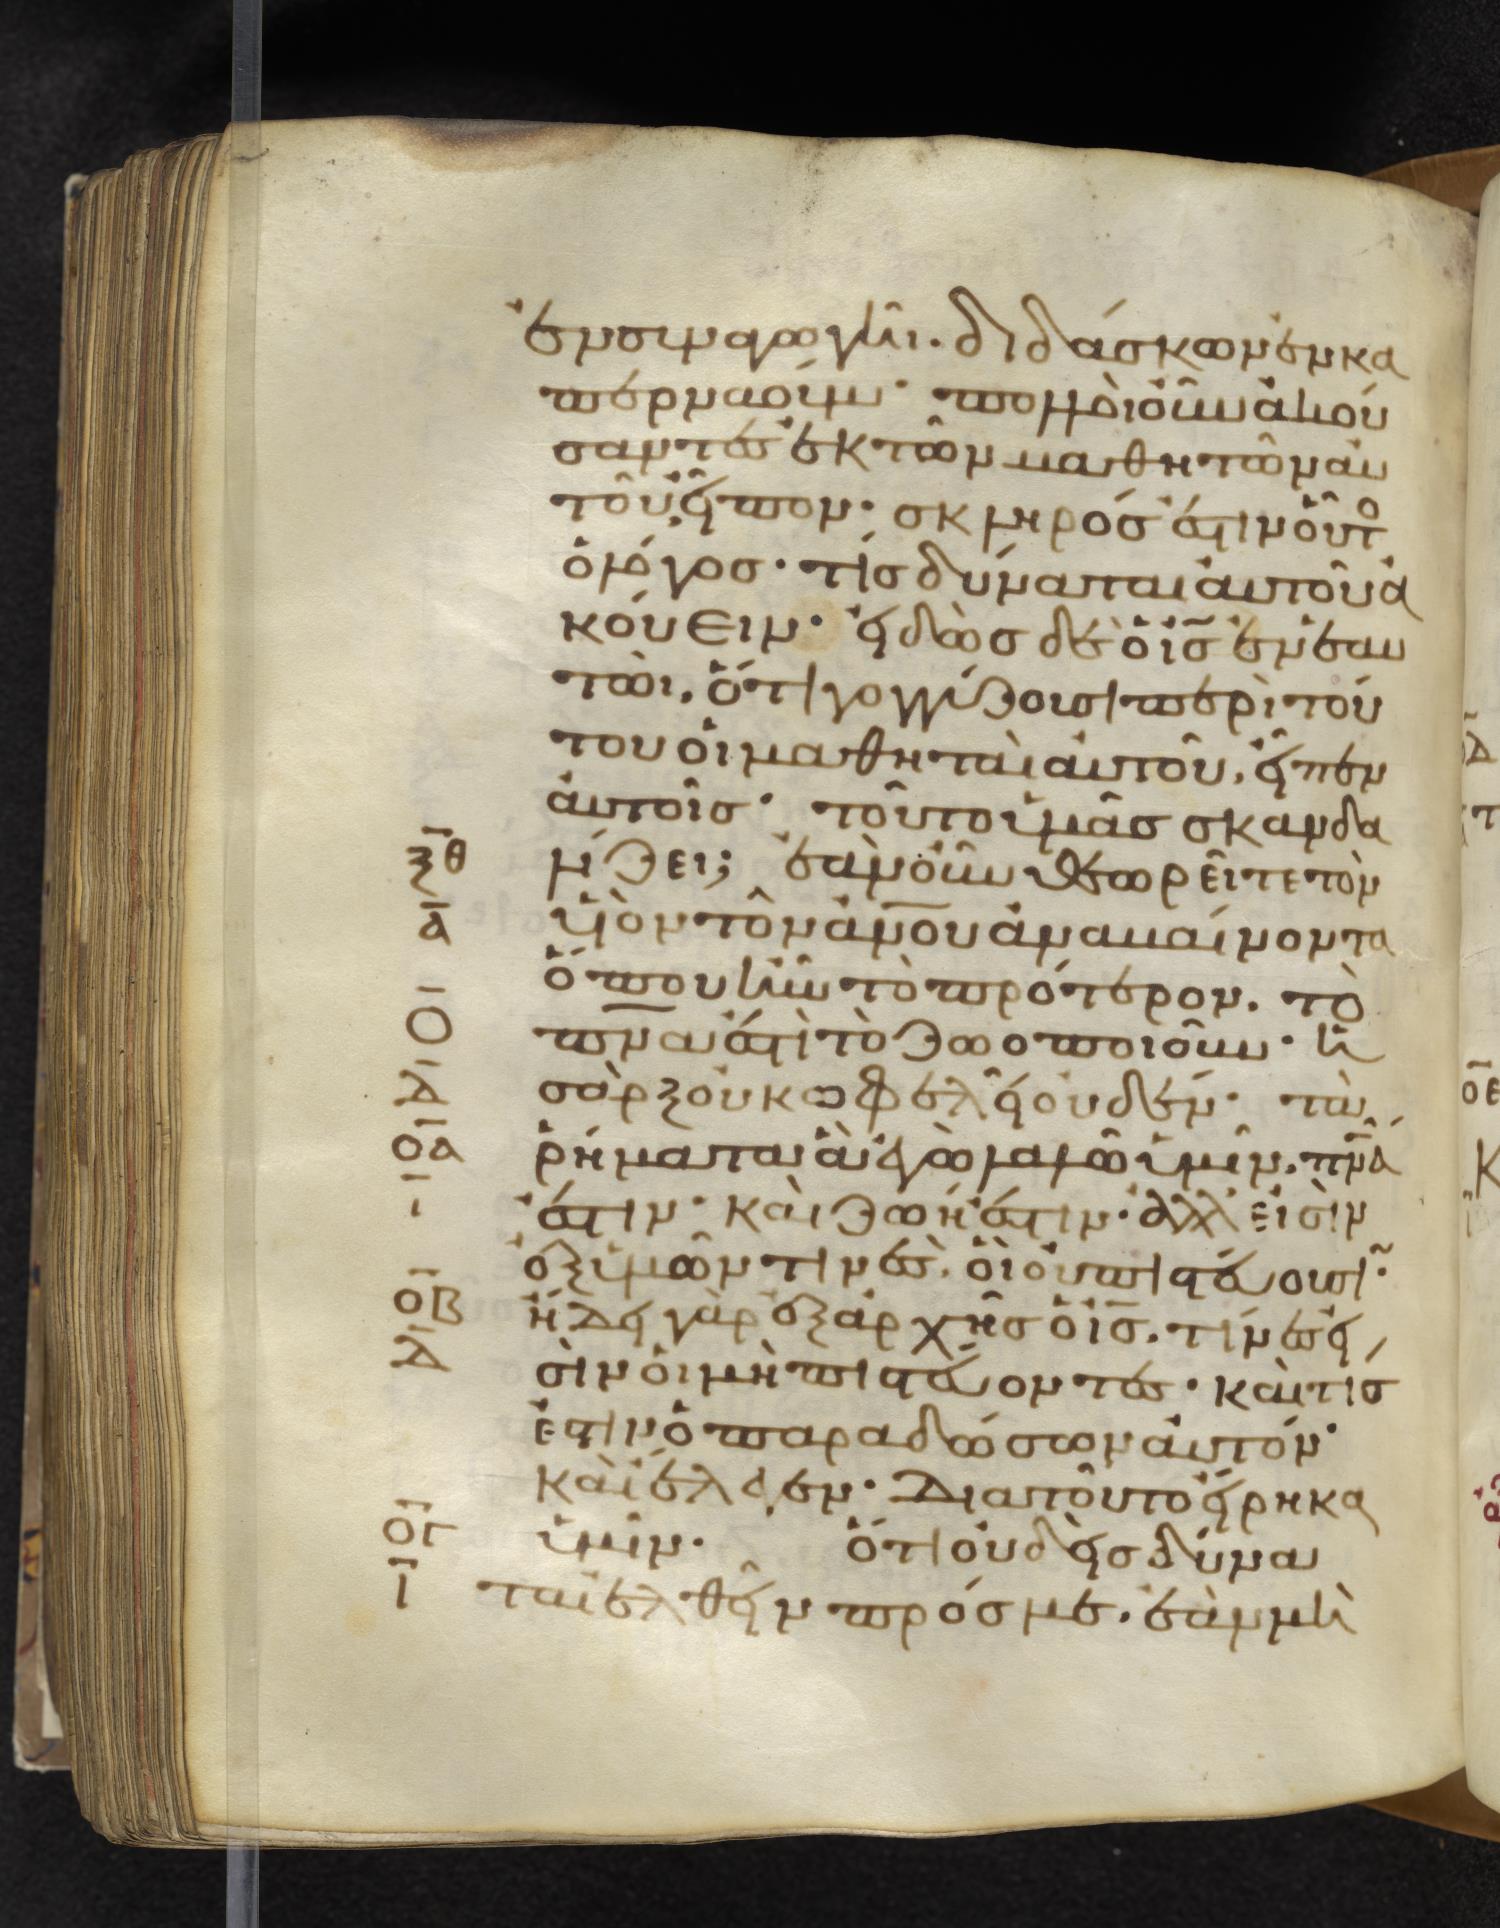 ἐν συναγωγῆι. διδάσκων ἐν κα
περναούμ· πολλοὶ οὖν ἀκού
σαντες ἐκ τῶν μαθητῶν αὐ
τοῦ, εἶπον· σκληρός ἐστιν οὗτο
ὁ λόγος· τίς δύναται αὐτοῦ ἀ
κούειν· εἰδὼς δὲ ὁ ις̅ ἐν ἑαυ
τῶι, ὅτι γογγύζουσι περὶ τού
του οἱ μαθηταὶ αὐτοῦ, εἶπεν
αὐτοῖς· τοῦτο ὑμᾶς σκανδα
ξθ λίζει; ἐὰν οὖν θεωρεῖτε τὸν
α υἱὸν τοῦ ἀνου ἀναβαίνοντα
ὅπου ἦν τὸ πρότερον. τὸ
ο πνα ἐστὶ τὸ ζωοποιοῦν· ἡ
δ σὰρξ οὐκ ὠφελεῖ οὐδέν· τὰ
οα ῥήματα ἃ ἐγὼ λαλῶ ὑμῖν, πνά
ι ἐστιν· καὶ ζωή ἐστιν· ἀλλ εἰσὶν
ἐξ ὑμῶν τινὲς. οἳ οὐ πιστεύουσι·
οβ ἤδει γὰρ ἐξ ἀρχῆς ὁ ις̅. τίνες εἰ
δ σὶν οἱ μὴ πιστεύοντες· καὶ τίς
ἐστιν ὁ παραδώσων αὐτόν·
καὶ ἔλεγεν· Διατοῦτο εἴρηκα
ογ ὑμῖν· ὅτι οὐδεὶς δύνα
ι ται ἐλθεῖν πρός με. ἐὰν μὴ